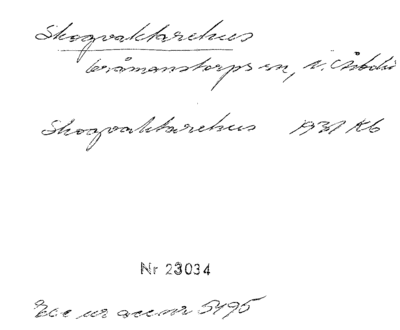 Skogvaktarehus
Gråmanstorps sn, N. Åsbo
Skogvaktarehus 1937 Kb
Nr 23034
Exc ur acc nr 5495